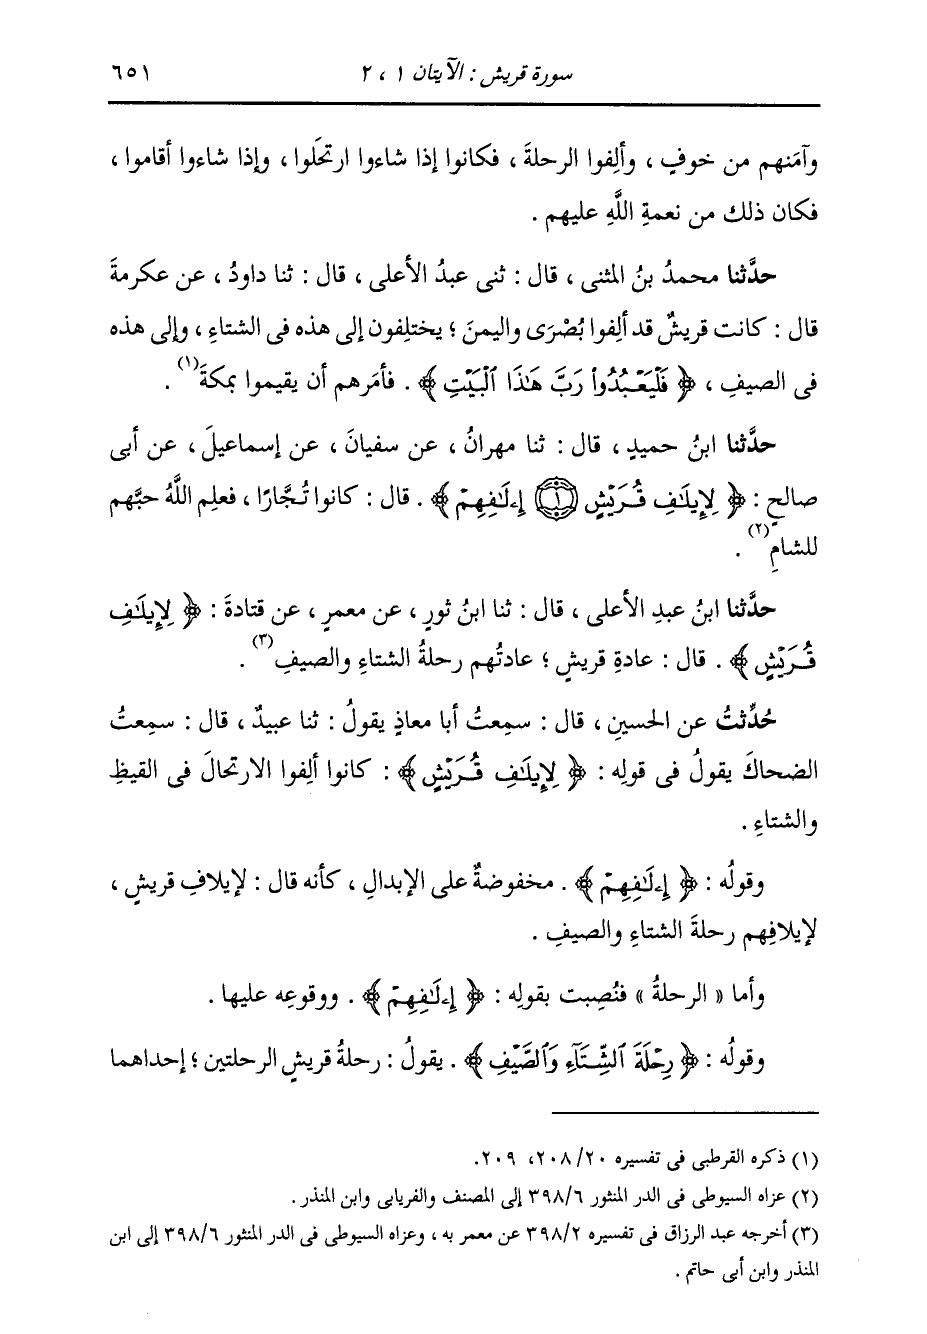 سورة قريش : الآيتان ١ ، ٢
٦٥١
وآمَنهم من خوفٍ ، وألِفوا الرحلةَ ، فكانوا إذا شاءوا ارتحَلوا ، وإذا شاءوا أقاموا ،
فكان ذلك من نعمةِ اللَّهِ عليهم .
حدَّثنا محمدُ بنُ المثنى ، قال : ثنى عبدُ الأعلى ، قال : ثنا داودُ ، عن عكرمةَ
قال : كانت قريشٌ قد ألِفوا بُصْرَى واليمنَ ؛ يختلِفون إلى هذه فى الشتاءِ ، وإلى هذه
فى الصيفِ ، ﴿ فَلْيَعْبُدُوا۟ رَبَّ هَٰذَا ٱلْبَيْتِ ﴾ . فأمَرهم أن يقيموا بمكةَ(١) .
حدَّثنا ابنُ حميدٍ ، قال : ثنا مهرانُ ، عن سفيانَ ، عن إسماعيلَ ، عن أبى
صالحٍ : ﴿ لِإِيلَٰفِ قُرَيْشٍ ۝١ إِۦلَٰفِهِمْ ﴾ . قال : كانوا تُجَّارًا ، فعلِم اللَّهُ حبَّهم
للشامِ(٢) .
حدَّثنا ابنُ عبدِ الأعلى ، قال : ثنا ابنُ ثورٍ ، عن معمرٍ ، عن قتادةَ : ﴿ لِإِيلَٰفِ
قُرَيْشٍ ﴾ . قال : عادةِ قريشٍ ؛ عادتُهم رحلةُ الشتاءِ والصيفِ(٣) .
حُدِّثتُ عن الحسينِ ، قال : سمِعتُ أبا معاذٍ يقولُ : ثنا عبيدٌ ، قال : سمِعتُ
الضحاكَ يقولُ فى قولِه : ﴿ لِإِيلَٰفِ قُرَيْشٍ ﴾ : كانوا ألِفوا الارتحالَ فى القيظِ
والشتاءِ .
وقولُه : ﴿ إِۦلَٰفِهِمْ ﴾ . مخفوضةٌ على الإبدالِ ، كأنه قال : لإيلافِ قريشٍ ،
لإيلافِهم رحلةَ الشتاءِ والصيفِ .
وأما « الرحلةُ » فنُصِبت بقولِه : ﴿ إِۦلَٰفِهِمْ ﴾ . ووقوعِه عليها .
وقولُه : ﴿ رِحْلَةَ ٱلشِّتَآءِ وَٱلصَّيْفِ ﴾ . يقولُ : رحلةُ قريشٍ الرحلتين ؛ إحداهما
(١) ذكره القرطبى فى تفسيره ٢٠/ ٢٠٨، ٢٠٩.
(٢) عزاه السيوطى فى الدر المنثور ٣٩٨/٦ إلى المصنف والفريابى وابن المنذر .
(٣) أخرجه عبد الرزاق فى تفسيره ٣٩٨/٢ عن معمر به ، وعزاه السيوطى فى الدر المنثور ٣٩٨/٦ إلى ابن
المنذر وابن أبى حاتم .